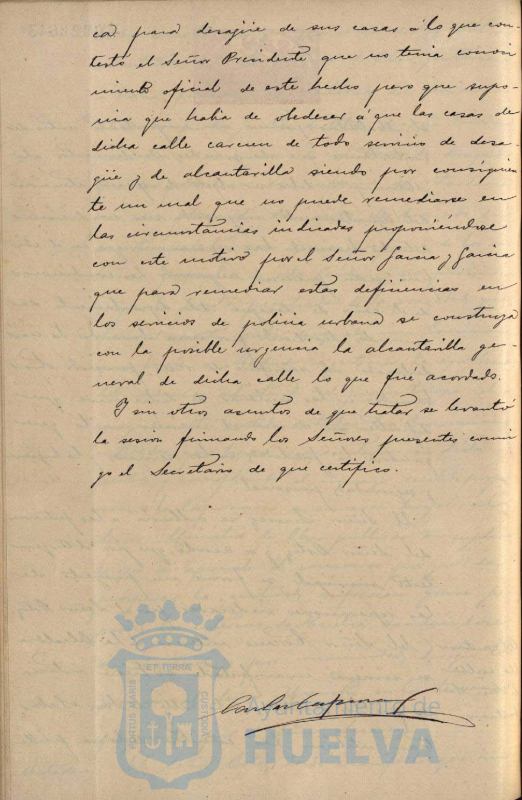 ca para desagüe de sus casas á lo que con-
testó el Señor Presidente que no tenia conoci
miento oficial de este hecho pero que supo-
nia que habia de obedecer á que las casas de
dicha calle carecen de todo servicio de desa-
güe y de alcantarilla siendo por consiguien
te un mal que no puede remediarse en
las circunstancias indicadas proponiéndose
con este motivo por el Señor Garcia y Garcia
que para remediar estas deficiencias en
los servicios de policia urbana se construya
con la posible urgencia la alcantarilla ge-
neral de dicha calle lo que fué acordado.
Y sin otros asuntos de que tratar se levantó
la sesion firmando los Señores presentes conmi
go el Secretario de que certifico.
ET TERRA
PORTUS MARIS
CUSTODIA
Ayuntamiento de
HUELVA